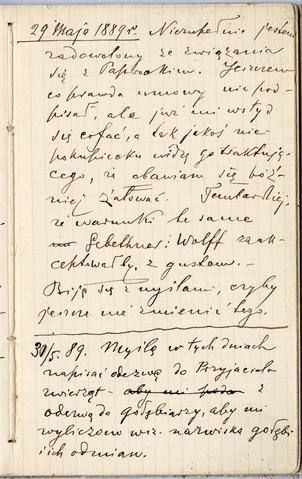 29 Maja 1889 r. Niezupełnie jestem
zadowolony ze związania
się z Paprockim. Jeszczem
co prawda umowy nie pod-
pisał, ale już mi wstyd
się cofać, a tak jakoś nie
po kupiecku widzę go traktują-
cego, iż obawiam się póź-
niej żałować. Tembardziej,
że warunki te same
Gebethner i Wolff zaak-
ceptowałby, z gustem. –
Biję się z myślami, czyby
jeszcze nie zmienić tego.
30/5. 89. Myślę w tych dniach
napisać odezwę do Przyjaciela
zwierząt aby mi poda z
odezwą do gołębiarzy, aby mi
wyliczono wiz. nazwiska gołębi
i ich odmian.